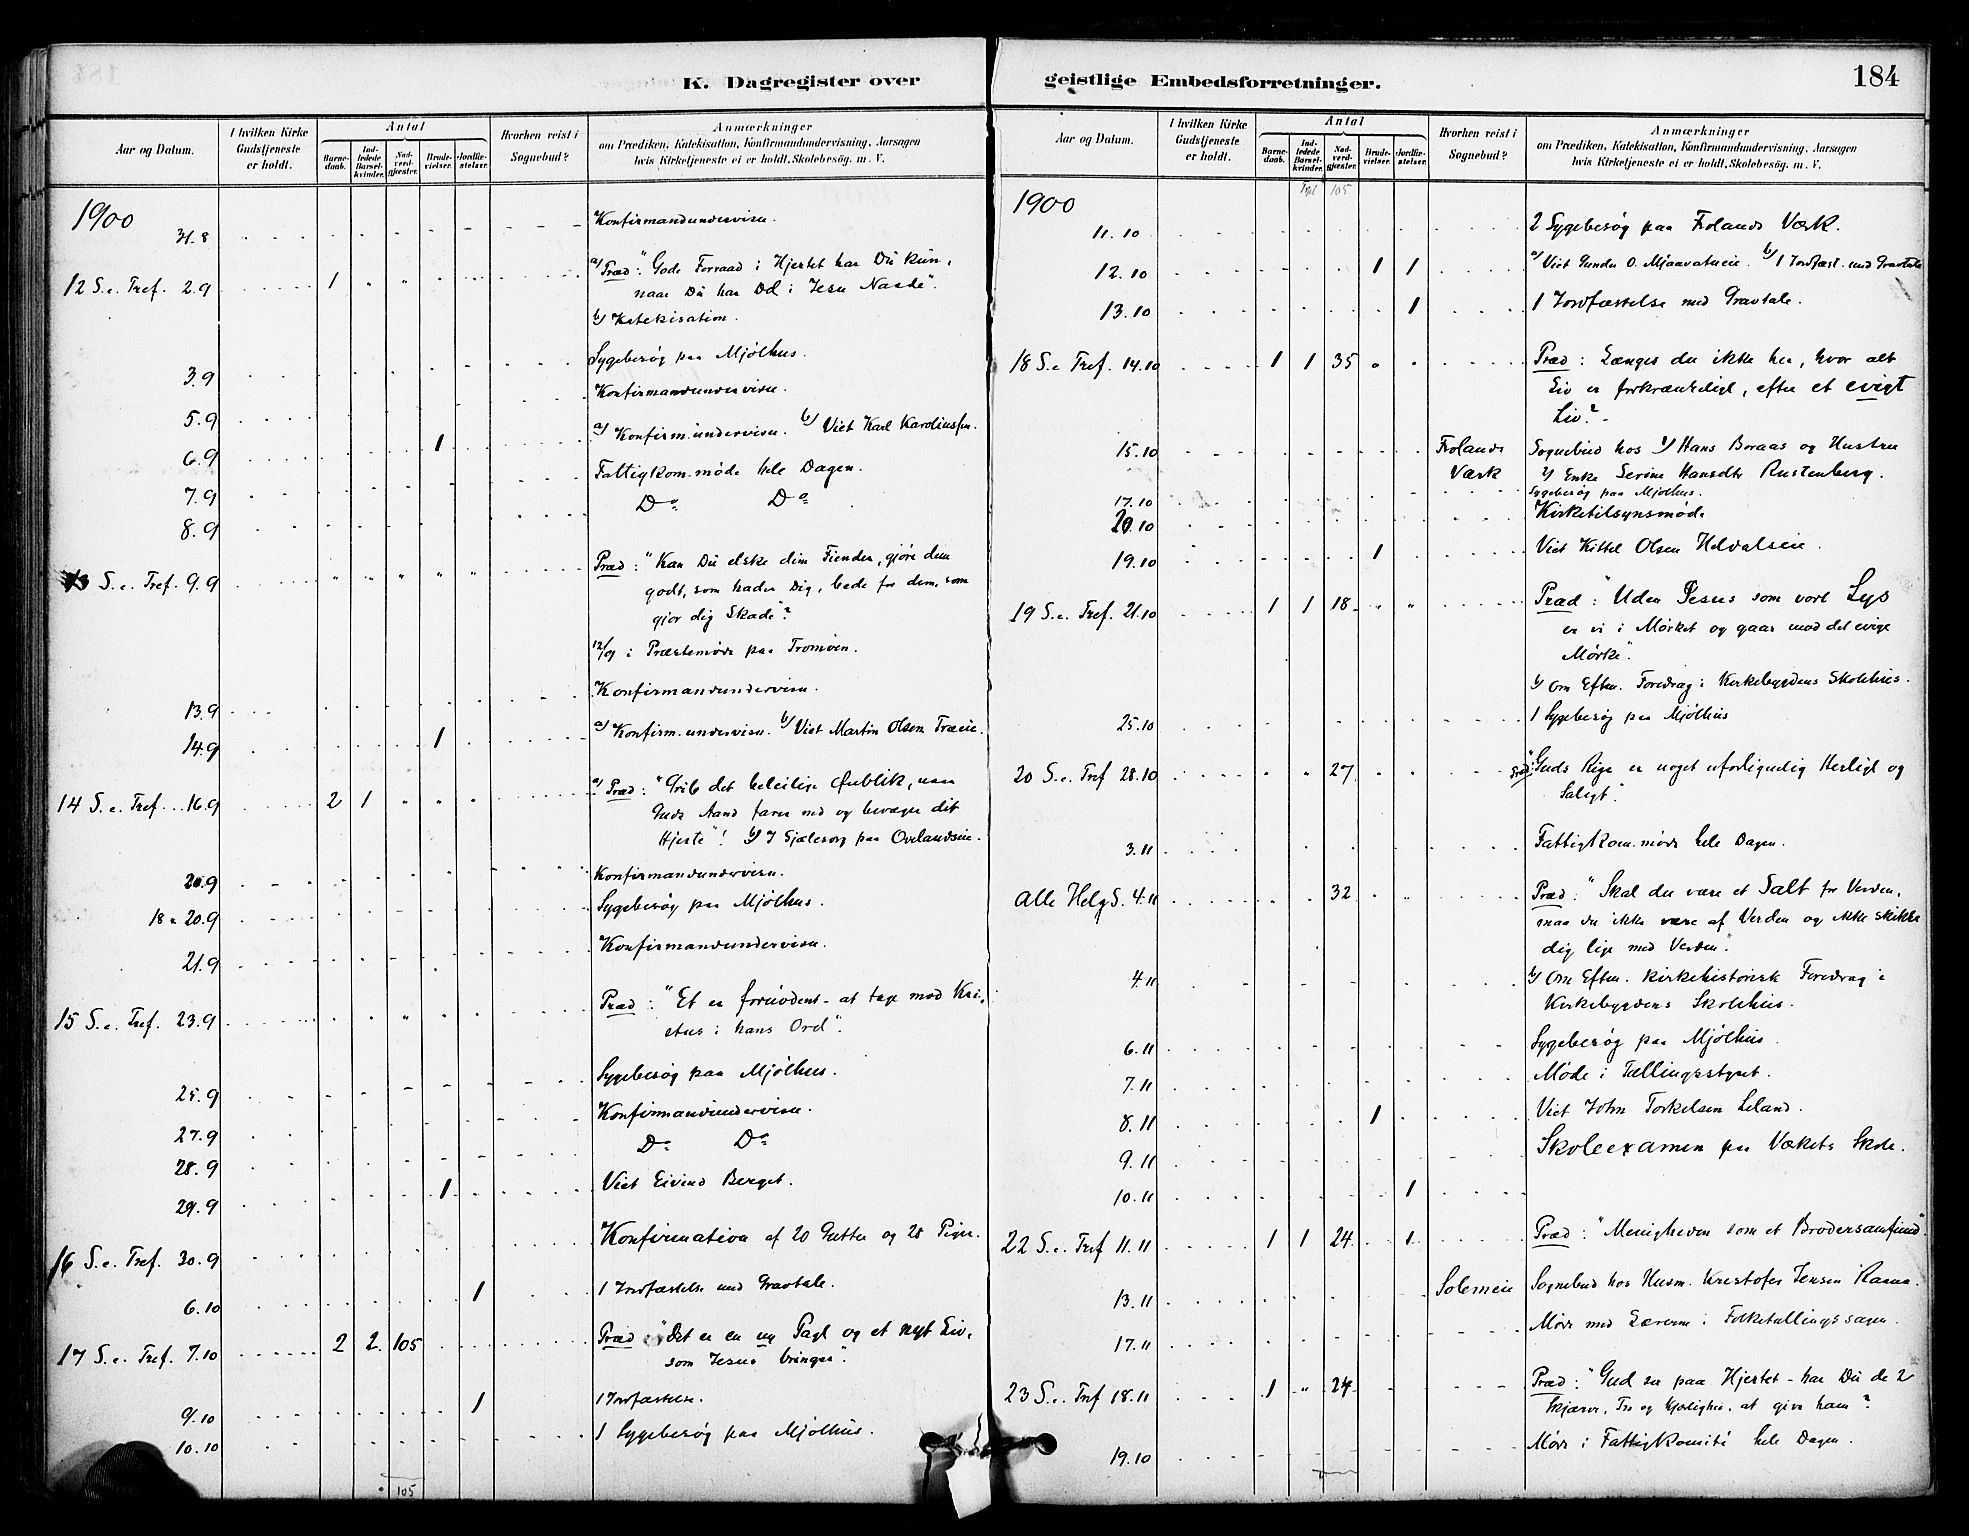 K. Dagregister over
Aar og Datum.
I hvilken Kirke Gudstjeneste er holdt.
Antal
Barne-daab.
Ind-ledede Barsel-kvinder.
Nad-verd-gjester.
Brude-vielser.
Jordfæ-stelser.
Hvorhen reist i Sognebud?
Anmærkninger
om Prædiken, Katekisation, Konfirmandundervisning, Aarsagen
hvis Kirketjeneste ei er holdt, Skolebesøg. m. V.
1900
31.8 Konfirmandundervisn.
12 S. e. Tref. 2.9 1 " " a/ Præd: "Gode Forraad i Hjertet har Du kun,
naar Du har Del i Jesu Naade".
b/ Katekisation.
3.9 Sygebesøg paa Mjølhus.
5.9 Konfirmandundervisn.
6.9 1 a/ Konfirm.undervisn. b/ Viet Karl Karoliussen.
7.9 Fattigkom.møde hele Dagen.
8.9 Do Do
13 S. e. Tref. 9.9 " " " " " Præd: "Kan Du elske dine Fiender, gjøre dem
godt, som hader Dig, bede for dem, som
gjør dig Skade"?
12/9 i Præstemøde paa Tromøen.
13.9 Konfirmandundervisn.
14.9 1 a/ Konfirm.undervisn. b/ Viet Martin Olsen Træeie.
14 S. e. Tref. 16.9 2 1 " " " a/ Præd: "Grib det beleilige Øieblik, naar
Guds Aand farer ned og bevæger dit
Hjerte"! b/ I Sjælesorg paa Ovelandseie.
20.9 Konfirmandundervisn.
18 & 20.9 Sygebesøg paa Mjølhus.
21.9 Konfirmandundervisn.
15 S. e. Tref. 23.9 Præd: "Et er fornødent - at tage mod Kri-
stus i hans Ord".
25.9 Sygebesøg paa Mjølhus.
27.9 Konfirmandundervisn.
28.9 Do Do
29.9 1 Viet Eivind Berget.
16 S. e. Tref. 30.9 Konfirmation af 20 Gutter og 28 Piger.
6.10 1 1 Jordfæstelse med Gravtale.
17 S. e. Tref. 7.10 2 2 105 Præd: "Det er en ny Pagt og et nyt Liv,
som Jesus bringer".
9.10 1 1 Jordfæstelse.
10.10 1 Sygebesøg paa Mjølhus.
105
geistlige Embedsforretninger.
184
Aar og Datum.
I hvilken Kirke Gudstjeneste er holdt.
Antal
Barne-daab.
Ind-ledede Barsel-kvinder.
Nad-verd-gjester.
Brude-vielser.
Jordfæ-stelser.
Hvorhen reist i Sognebud?
Anmærkninger
om Prædiken, Katekisation, Konfirmandundervisning, Aarsagen
hvis Kirketjeneste ei er holdt, Skolebesøg. m. V.
105
1900
11.10 2 Sygebesøg paa Frolands Værk.
12.10 1 1 a/ Viet Gunder O. Mjaavatneie. b/ 1 Jordfæst. med Gravtale
13.10 1 1 Jordfæstelse med Gravtale.
18 S. e. Tref. 14.10 1 1 35 " Præd: Længes du ikke her, hvor alt
Liv er forkrænkeligt, efter et evigt
Liv?
15.10 Frolands Værk Sognebud hos 1/ Hans Boraas og Hustru
2/ Enke Serine Hansdtr Rustenberg.
17.10 Sygebesøg paa Mjølhus.
20.10 Kirketilsynsmøde
19.10 1 Viet Kittel Olsen Heldalseie.
19 S. e. Tref. 21.10 1 1 18 " " Præd: "Uden Jesus som vort Lys
er vi i Mørket og gaar mod det evige
Mørke".
b/ Om Eften. Foredrag i Kirkebygdens Skolehus.
25.10 1 Sygebesøg paa Mjølhus
20 S. e. Tref 28.10 " " 27 Præd: "Guds Rige er noget uforligneligt Herligt og
Saligt".
3.11 Fattigkom.møde hele Dagen.
Alle Helg S. 4.11 32 Præd: "Skal du være et Salt for Verden,
maa du ikke være af Verden og ikke skikke
dig lige med Verden".
4.11 b/ Om Eften. kirkehistorisk Foredrag i
Kirkebygdens Skolehus.
6.11 Sygebesøg paa Mjølhus.
7.11 Møde i Tællingsstyret.
8.11 1 Viet John Torkelsen Leland.
9.11 Skoleexamen paa Værkets Skole.
10.11 1
22 S. e. Tref 11.11 1 1 24 1 Præd: "Menigheden som et Brodersamfund".
13.11 Solemeie Sognebud hos Husm. Kristofer Jensen
17.11 Møde med Lærerne i Folketællingssagen.
23 S. e. Tref 18.11 1 " 24 Præd: "Gud ser paa Hjertet - har Du de 2
Skjærve, Tro og Kjærlighed, at give ham"?
19.10 Møde i Fattigkomité hele Dagen.